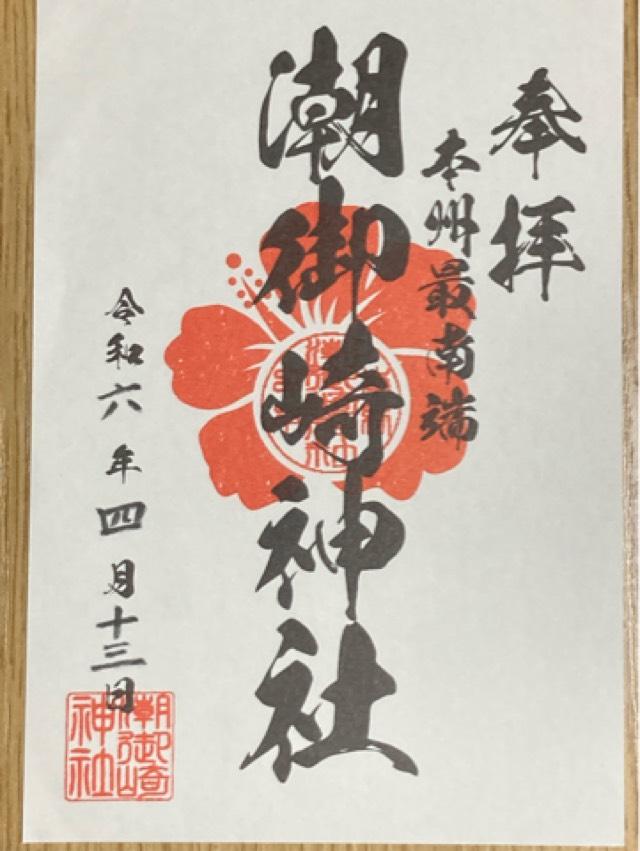 奉拝
本州最南端
潮御崎神社
令和六年四月十三日
潮御崎
神社